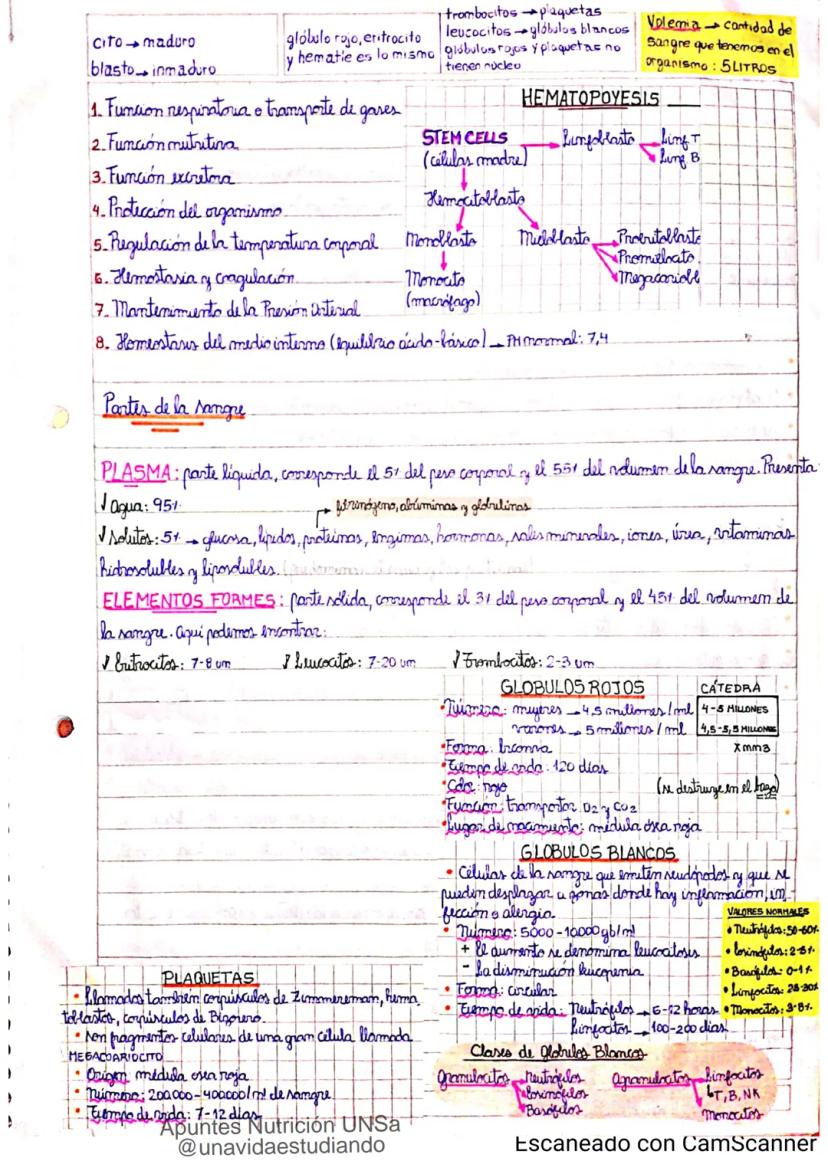 cito → maduro
blasto → inmaduro
glóbulo rojo, eritrocito
y hematíe es lo mismo
trombocitos → plaquetas
leucocitos → glóbulos blancos
glóbulos rojos y plaquetas no
tienen núcleo
Volemia → cantidad de
sangre que tenemos en el
organismo: 5 LITROS
1. Función respiratoria o transporte de gases
2. Función nutritiva
3. Función excretora
4. Protección del organismo
5. Regulación de la temperatura corporal
6. Hemostasia y coagulación
7. Mantenimiento de la Presión Arterial
8. Homeostasis del medio interno (equilibrio ácido-básico) → PH normal: 7,4
HEMATOPOYESIS
STEM CELLS → Linfoblasto → Linf T
(células madre) Linf B
Hemocitoblasto
Monoblasto Mieloblasto → Proeritoblasto
Promielocito
Monocito Megacariobl
(macrófago)
Partes de la sangre
PLASMA: parte líquida, corresponde el 5% del peso corporal y el 55% del volumen de la sangre. Presenta
✓ Agua: 95%
fibrinógeno, albúminas y globulinas
✓ Solutos: 5% → glucosa, lípidos, proteínas, enzimas, hormonas, sales minerales, iones, úrea, vitaminas
hidrosolubles y liposolubles.
ELEMENTOS FORMES: parte sólida, corresponde el 3% del peso corporal y el 45% del volumen de
la sangre. Aquí podemos encontrar:
✓ Eritrocitos: 7-8 um ✓ Leucocitos: 7-20 um ✓ Trombocitos: 2-3 um
GLOBULOS ROJOS
• Número: mujeres → 4,5 millones/ml
varones → 5 millones/ml
CÁTEDRA
4-5 MILLONES
4,5-5,5 MILLONES
X mm3
• Forma: biconva
• Tiempo de vida: 120 días
• Color: rojo (se destruye en el bazo)
• Función: transportar O2 y CO2
• Lugar de nacimiento: médula ósea roja
GLOBULOS BLANCOS
• Células de la sangre que emiten seudópodos y que se
pueden desplazar a zonas donde hay inflamación, in-
fección o alergia.
• Número: 5000-10000 gb/ml
+ El aumento se denomina leucocitosis
- La disminución leucopenia
• Forma: circular
• Tiempo de vida: Neutrófilos → 6-12 horas
Linfocitos → 100-200 días
VALORES NORMALES
• Neutrófilos: 50-60%
• Eosinófilos: 2-5%
• Basófilos: 0-1%
• Linfocitos: 25-30%
• Monocitos: 3-8%
Clases de Glóbulos Blancos
Granulocitos → Neutrófilos
Eosinófilos
Basófilos
Agranulocitos → Linfocitos
↳ T, B, NK
Monocitos
PLAQUETAS
• Llamados también corpúsculos de Zimmereman, hema
toblastos, corpúsculos de Bizozero.
• Son fragmentos celulares de una gran célula llamada
MEGACARIOCITO
• Origen: médula ósea roja
• Número: 200000-400000/ml de sangre
• Tiempo de vida: 7-12 días
Apuntes Nutrición UNSa
@unavidaestudiando
Escaneado con CamScanner